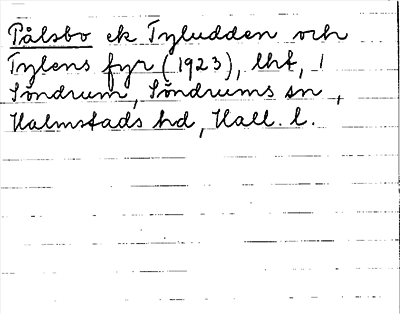 Pålsbo ek Tyludden och
Tylens fyr (1923), lht, i
Söndrum, Söndrums sn,
Halmstads hd, Hall. l.